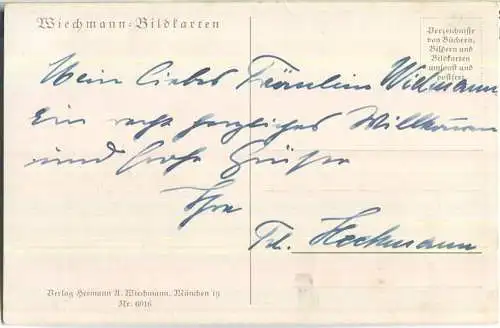 Wiechmann-Bildkarten
Verzeichnisse
von Büchern,
Bildern und
Bildkarten
umsonst und
postfrei
Mein liebes Fräulein Widmann
Ein recht herzliches Willkommen
und frohe Grüße
Ihre
Heckmann
Verlag Hermann A. Wiechmann, München 19
Nr. 6016